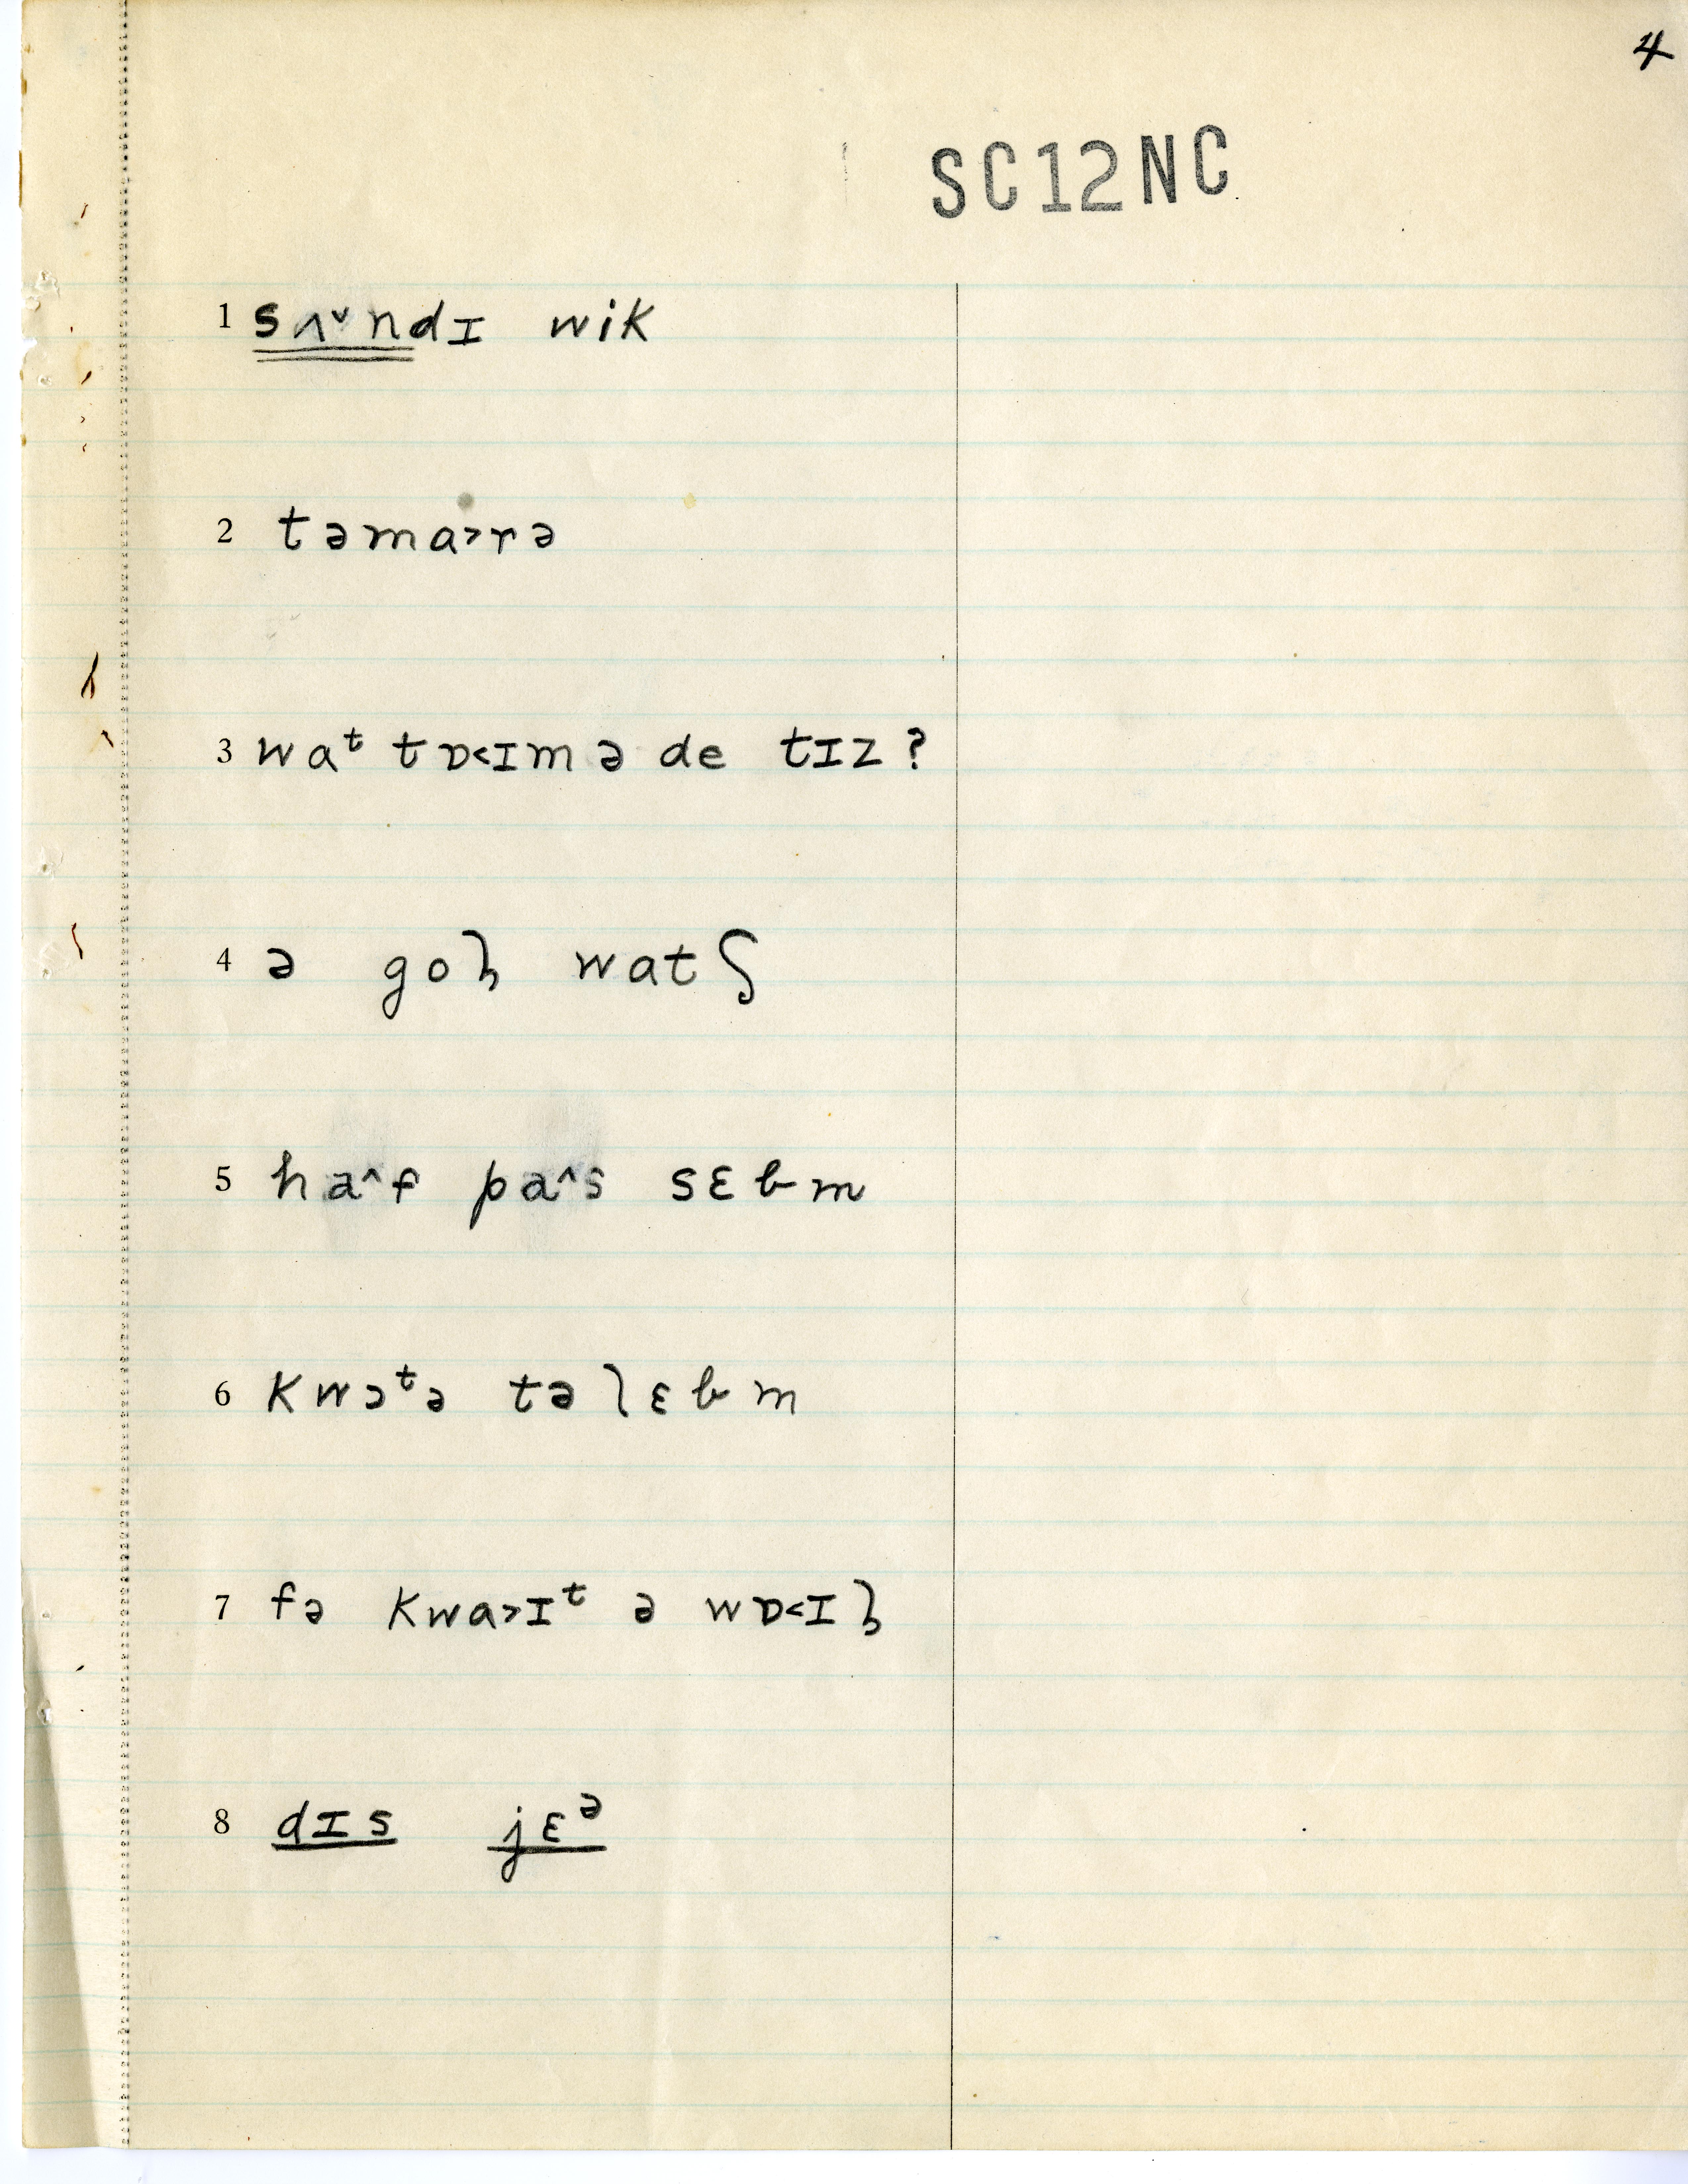 4
SC12NC
1 sʌ˅ndɪ wik
2 təma˃rə
3 waᵗ tɒ˂ɪm ə de tɪz?
4 ə goɫ watʃ
5 ha˄f pa˄s sɛbm
6 kwɔᵗə tə lɛbm
7 fə kwa˃ɪᵗ ə wɒ˂ɪɫ
8 dɪs jɛᵊ